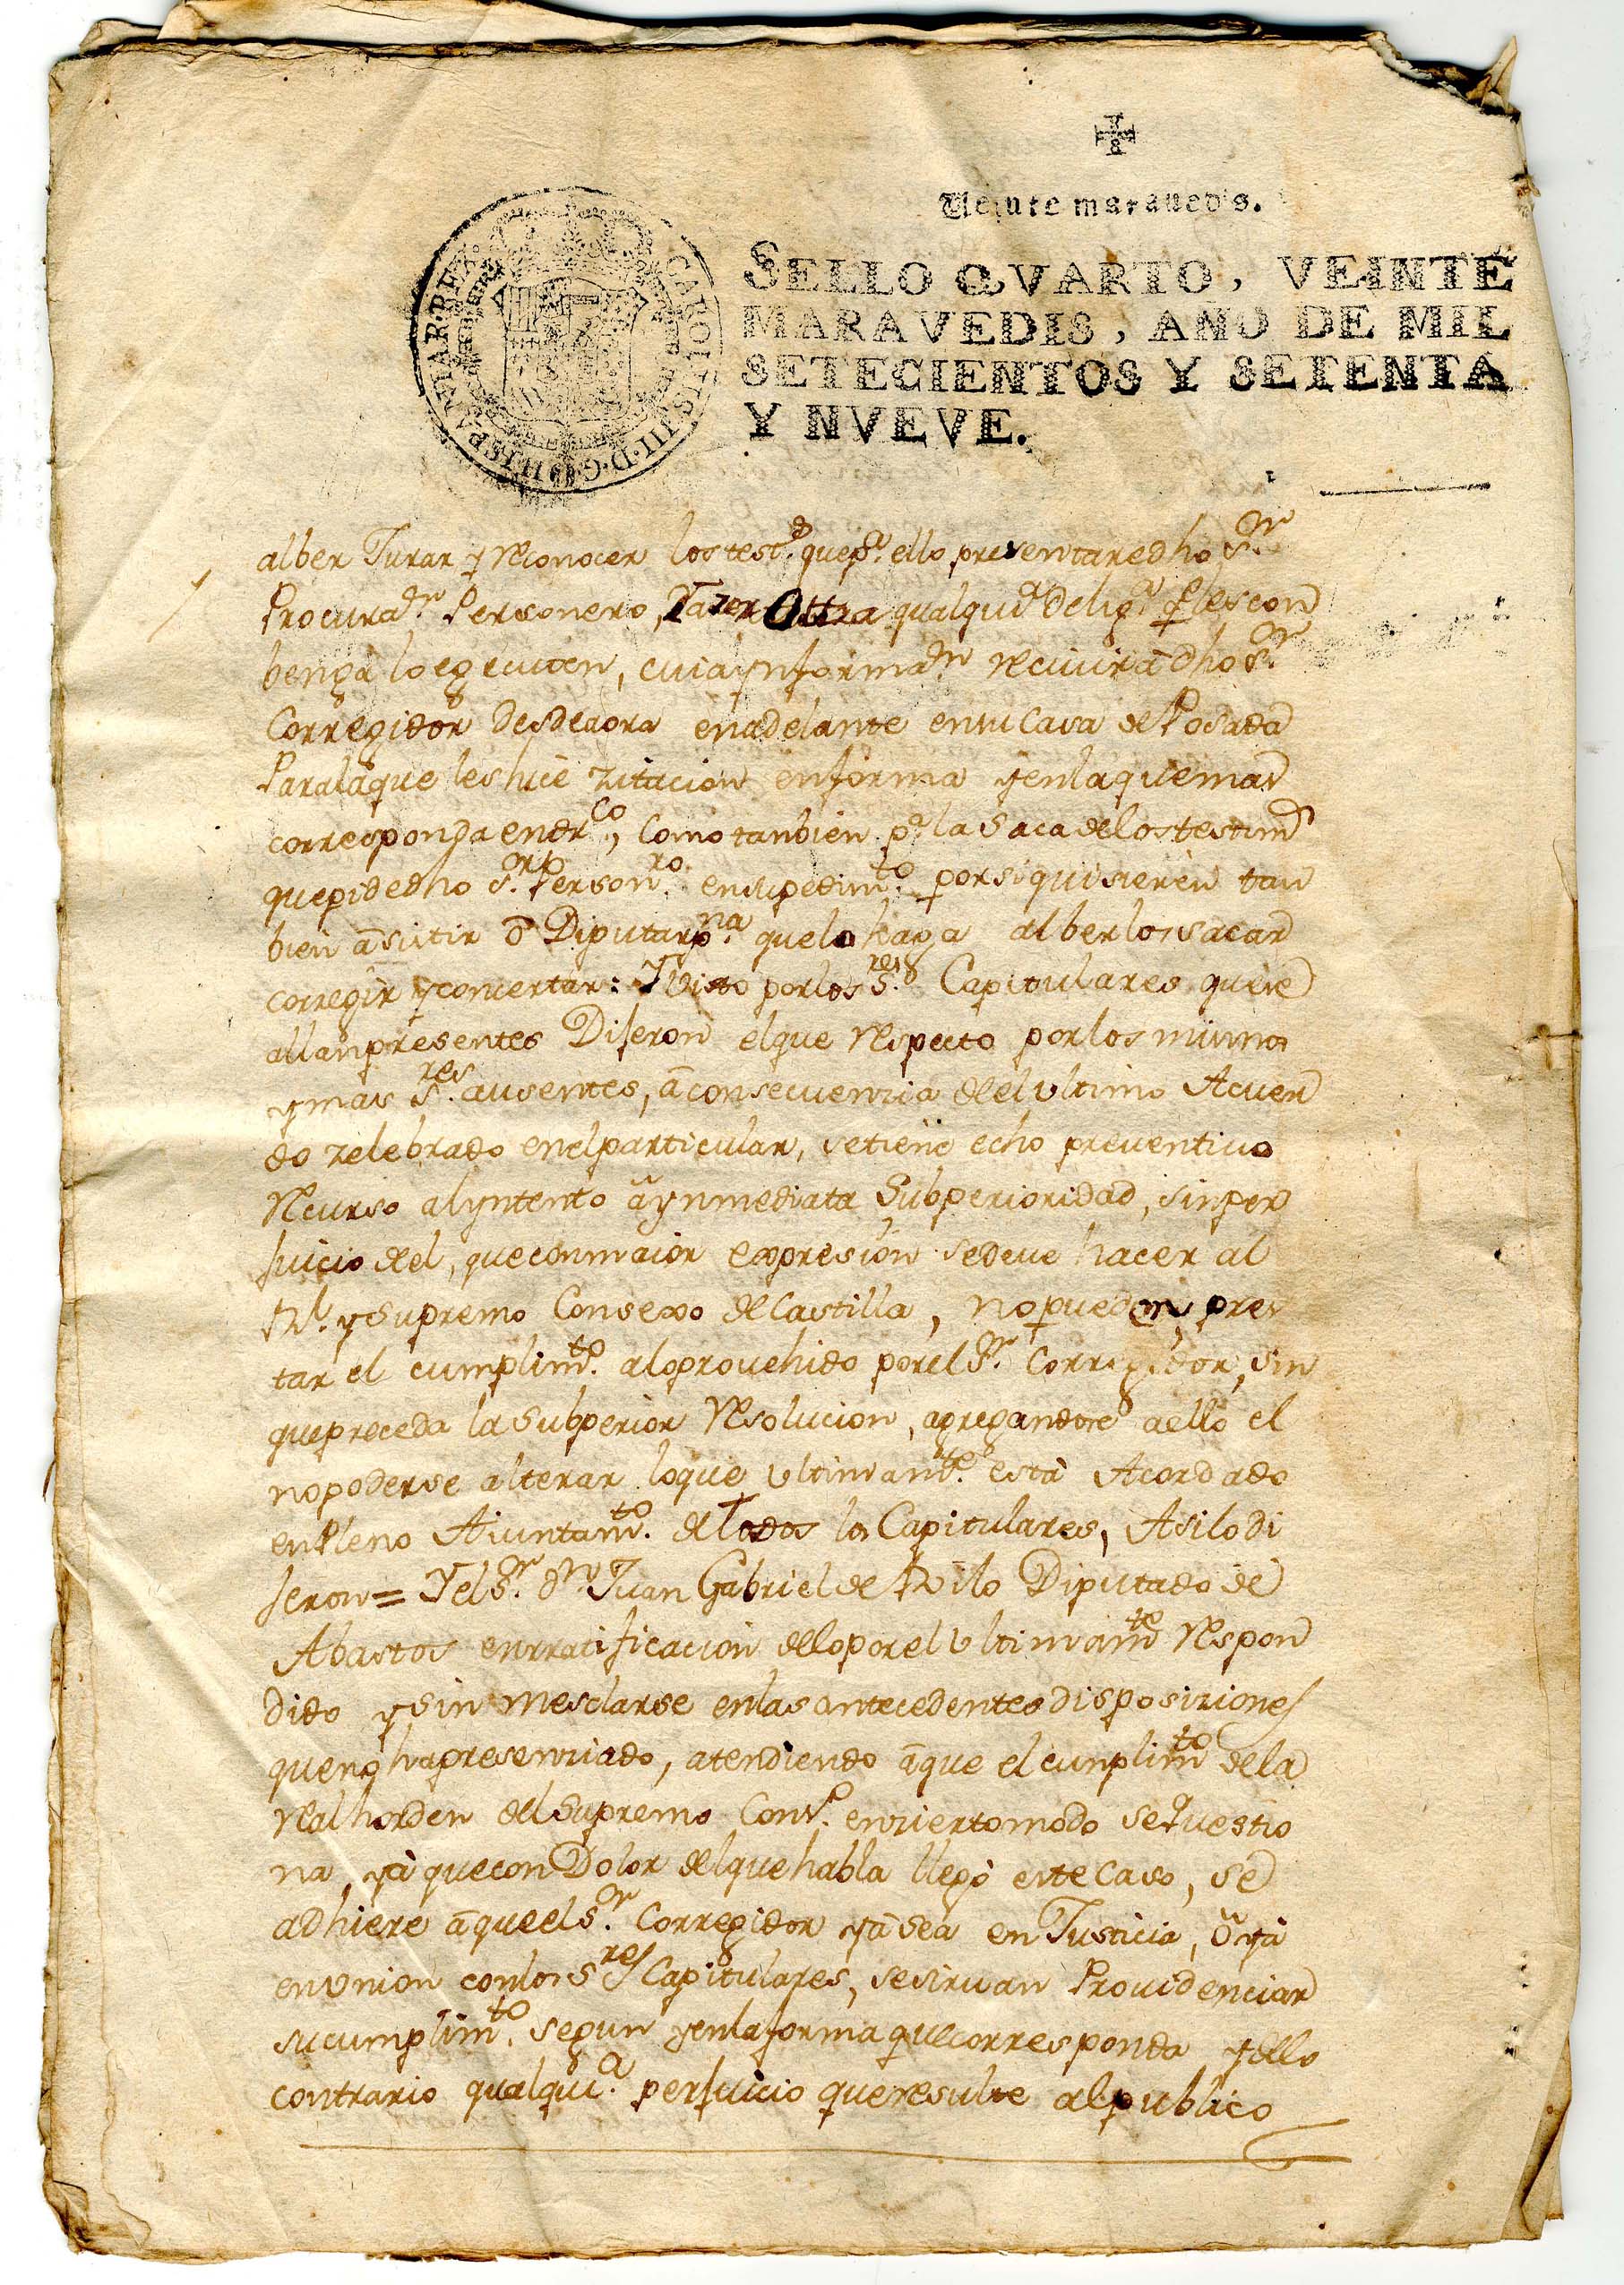 Veinte maravedis.
SELLO QVARTO, VEINTE
MARAVEDIS, AÑO DE MIL
SETECIENTOS Y SETENTA
Y NVEVE.
CAROLUS III D.G. HISPANIAR. REX
alber Jurar y Reconocer los tests. que pa. ello presentare dho Sor.
Procurador. Personero, Hazer Ottra qualquia deliga. q les con
benga lo egecuten, cuia ynformaon. Recivirà dho Sor.
Corregidor desde aora en adelante en su Casa de Posada
Para la que les hiće zitacion en forma y en la que mas
corresponda en drco., Como tanbien pa. la Saca de los testims
que pide dho Sor. Personro. en su pedimto. por si quisieren tan
bien àsistir ō Diputar pna. que lo haga al ber los sacar
corregir y concertar: Y Visto por los Sres. Capitulares que se
allan presentes Dijeron el que Respecto por los mismos
y mas Sres. ausentes, à consecuenzia de el vltimo Acuer
do zelebrado en el particular, se tiene echo preventivo
Recurso al yntento à ynmediata Subperioridad, sin per
juicio del, que con maior expresion se deve hacer al
Rl. y Supremo Consexo de Castilla, no pueden pres
tar el cumplimto. a lo provehido por el Sor. Corregidor, sin
que preceda la Subperior Resolucion, agregandose a ello el
no poderse alterar lo que vltimamte. està Acordado
en Pleno Aiuntamto. de todos los Capitulares, Asi lo di
jeron = Y el Sor. dn. Juan Gabriel de Rilo Diputado de
Abastos en rratificacion de lo por el vltimamte Respon
dido y sin mesclarse en las antecedentes disposiziones
que no ha presenziado, atendiendo àque el cunplimto de la
Real horden del Supremo Conso. en zierto modo se questio
na, yà que con Dolor del que habla llegò este Caso, se
adhiere àque el Sor. Corregidor yà sea en Justicia, ò yà
en vnion con los Sres Capitulares, se sirvan Providenciar
su cumplimto. segun y en la forma que corresponda y dello
contrario qualquia. perjuicio que resulte al publico